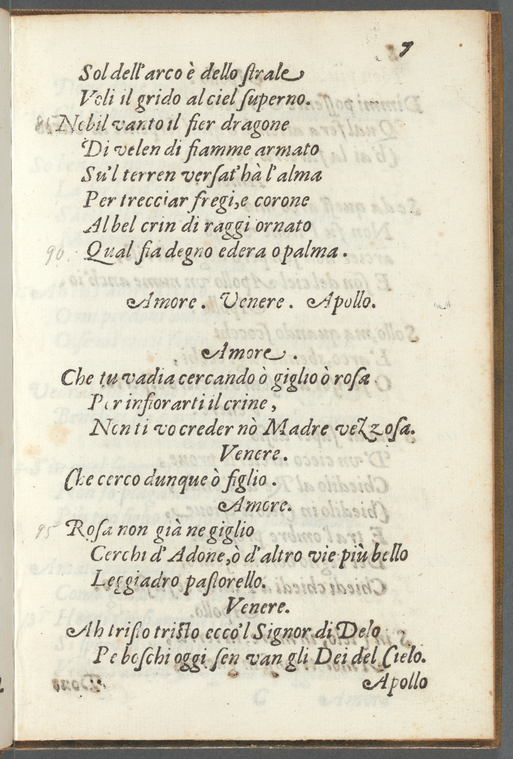 7
Sol dell'arco è dello strale
Voli il grido al ciel superno.
Nobil vanto il fier dragone
Di velen di fiamme armato
Su'l terren versat'hà l'alma
Per trecciar fregi, e corone
Al bel crin di raggi ornato
90 Qual fia degno edera o palma.
Amore. Venere. Apollo.
Amore.
Che tu vadia cercando ò giglio ò rosa
Per infiorarti il crine,
Non ti vo creder nò Madre vezzosa.
Venere.
Che cerco dunque ò figlio.
Amore.
95 Rosa non già ne giglio
Cerchi d'Adone, ò d'altro vie più bello
Leggiadro pastorello.
Venere.
Ah tristo tristo ecco'l Signor di Delo
Pe boschi oggi sen van gli Dei del Cielo.
Apollo